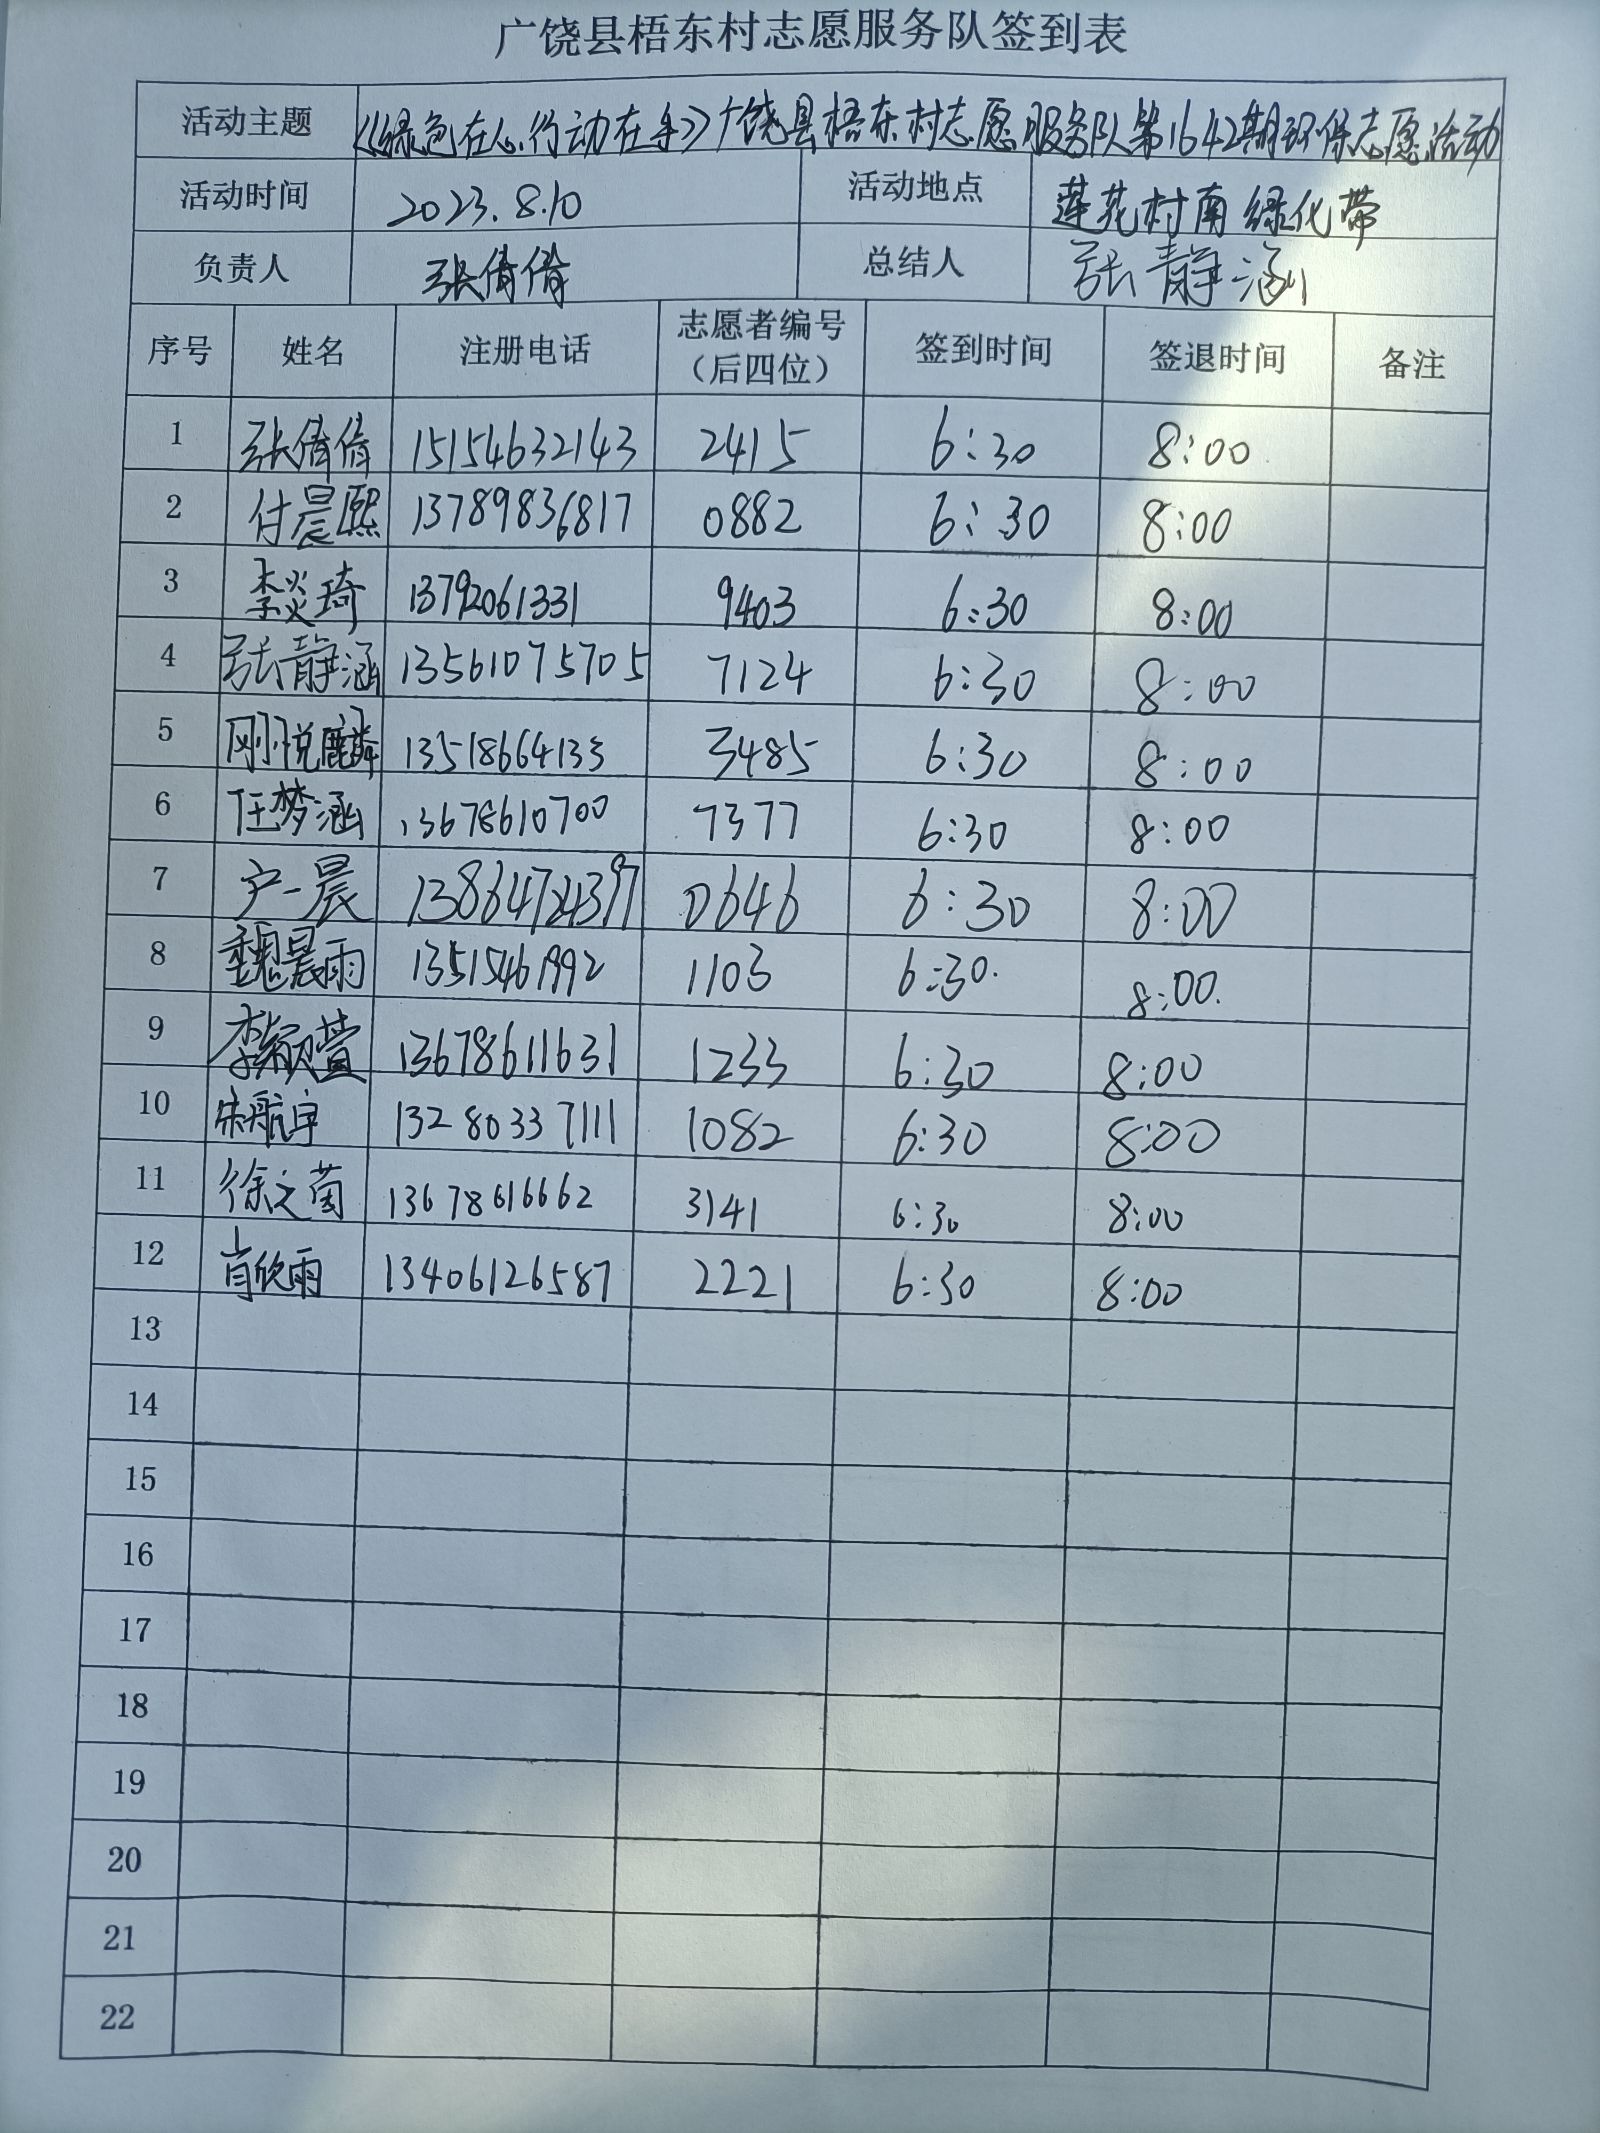 广饶县梧东村志愿服务队签到表
活动主题 《绿色在心行动在手》广饶县梧东村志愿服务队第1642期环保志愿活动
活动时间 2023.8.10 活动地点 莲花村南绿化带
负责人 张倩倩 总结人 张静涵
序号 姓名 注册电话 志愿者编号（后四位） 签到时间 签退时间 备注
1 张倩倩 15154632143 2415 6:30 8:00
2 付晨熙 13789836817 0882 6:30 8:00
3 李炎琦 13792061331 9403 6:30 8:00
4 张静涵 13561075705 7124 6:30 8:00
5 刚悦麟 13518664133 3485 6:30 8:00
6 任梦涵 13678610700 7377 6:30 8:00
7 户一晨 0646 6:30 8:00
8 魏晨雨 13515461992 1103 6:30. 8:00.
9 李颖萱 13678611631 1233 6:30 8:00
10 宋航宇 13280337111 1082 6:30 8:00
11 徐之茵 13678616662 3141 6:30 8:00
12 肖欣雨 13406126587 2221 6:30 8:00
13
14
15
16
17
18
19
20
21
22